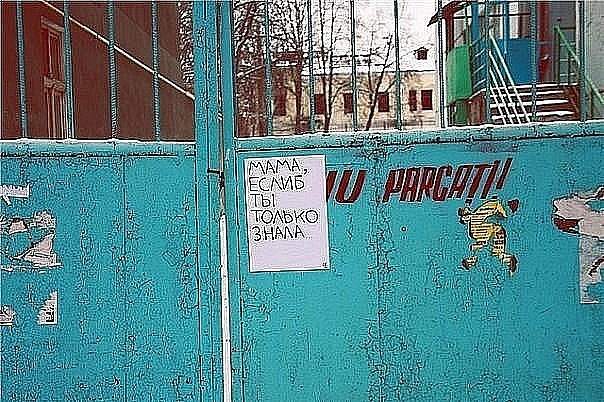 МАМА,
ЕСЛИБ
ТЫ
ТОЛЬКО
ЗНАЛА...
NU PARCAȚI!